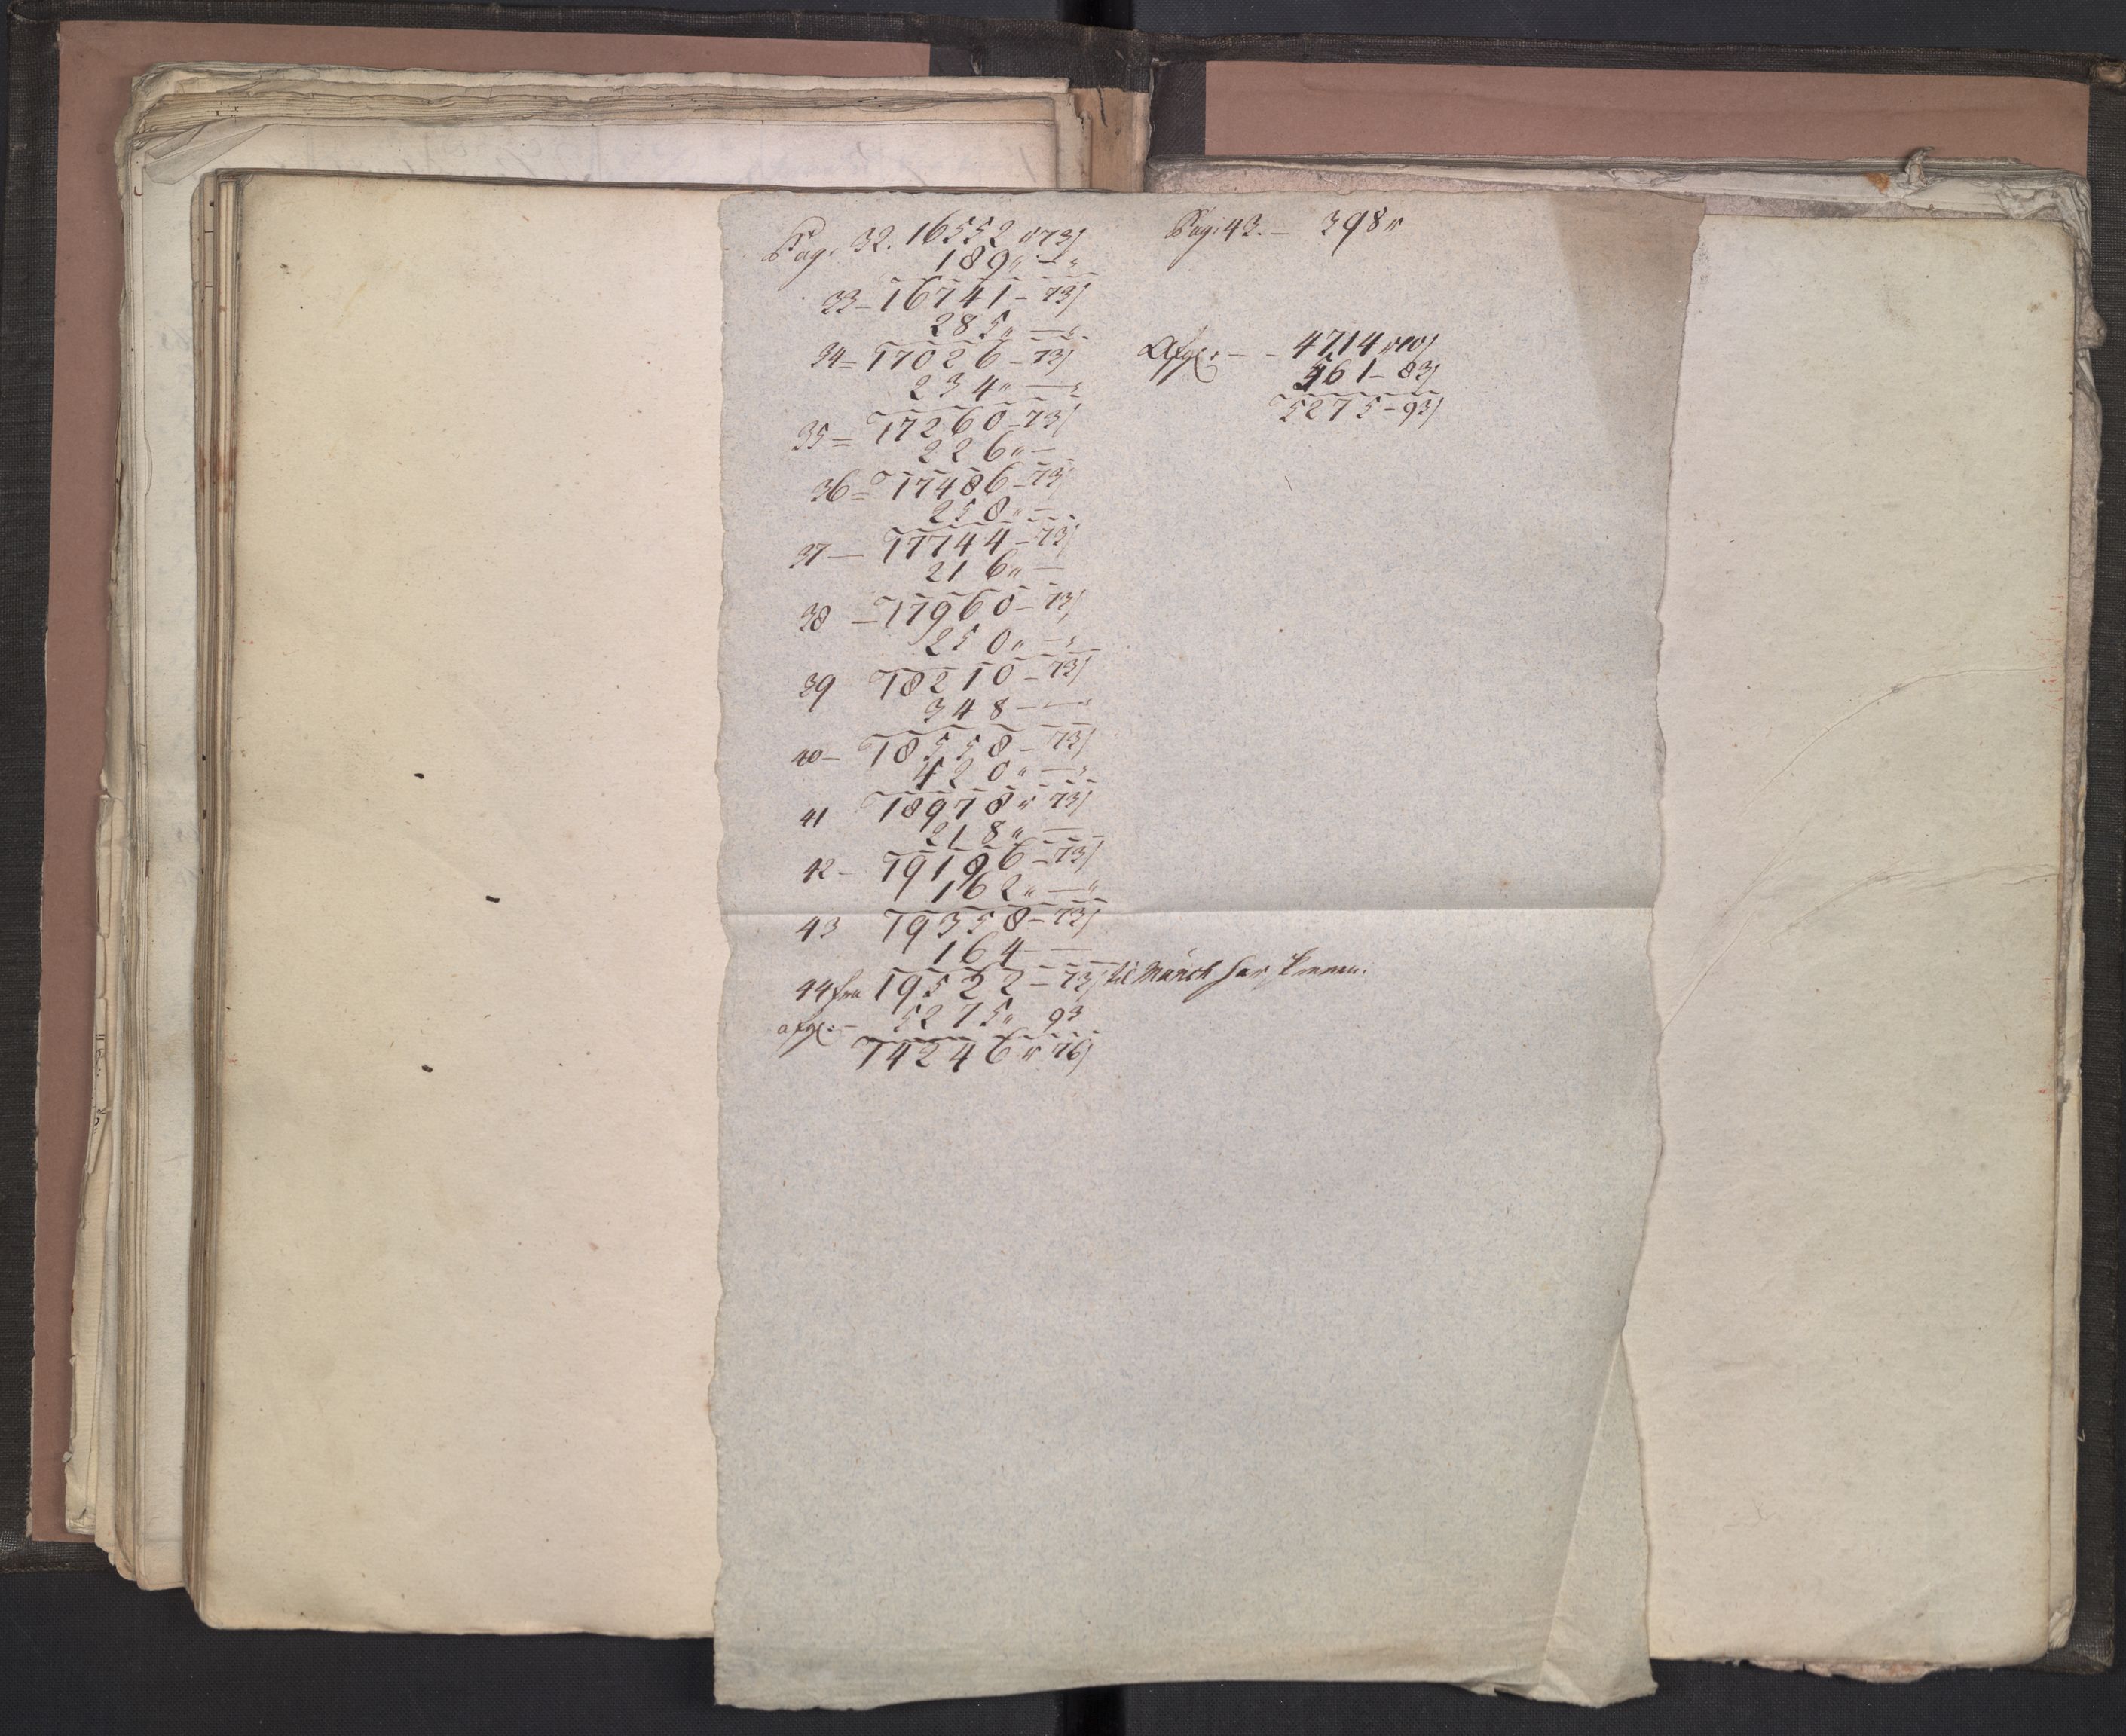 Pag. 32. 16552 " 73ſ
189 " — "
33 — 16741 — 73ſ
285 " — "
34 = 17026 — 73ſ
234 " — "
35 = 17260 — 73ſ
226 " —
36 = 17486 — 73ſ
258 " —
37 — 17744 — 73ſ
216 " —
38 — 17960 — 73ſ
250 " — "
39 18210 — 73ſ
348 — —
40 — 18558 — 73ſ
420 " — "
41 18978 " 73ſ
218 " —
42 — 19196 — 73ſ
162 " — "
43 19358 — 73ſ
164 — —
44 fra 19522 — 73ſ til Münch
afg: — 5275 " 93
14246 " 76ſ
Pag: 43. — 398 "
Afg: — — 4714 " 10ſ
561 — 83ſ
5275 — 93ſ